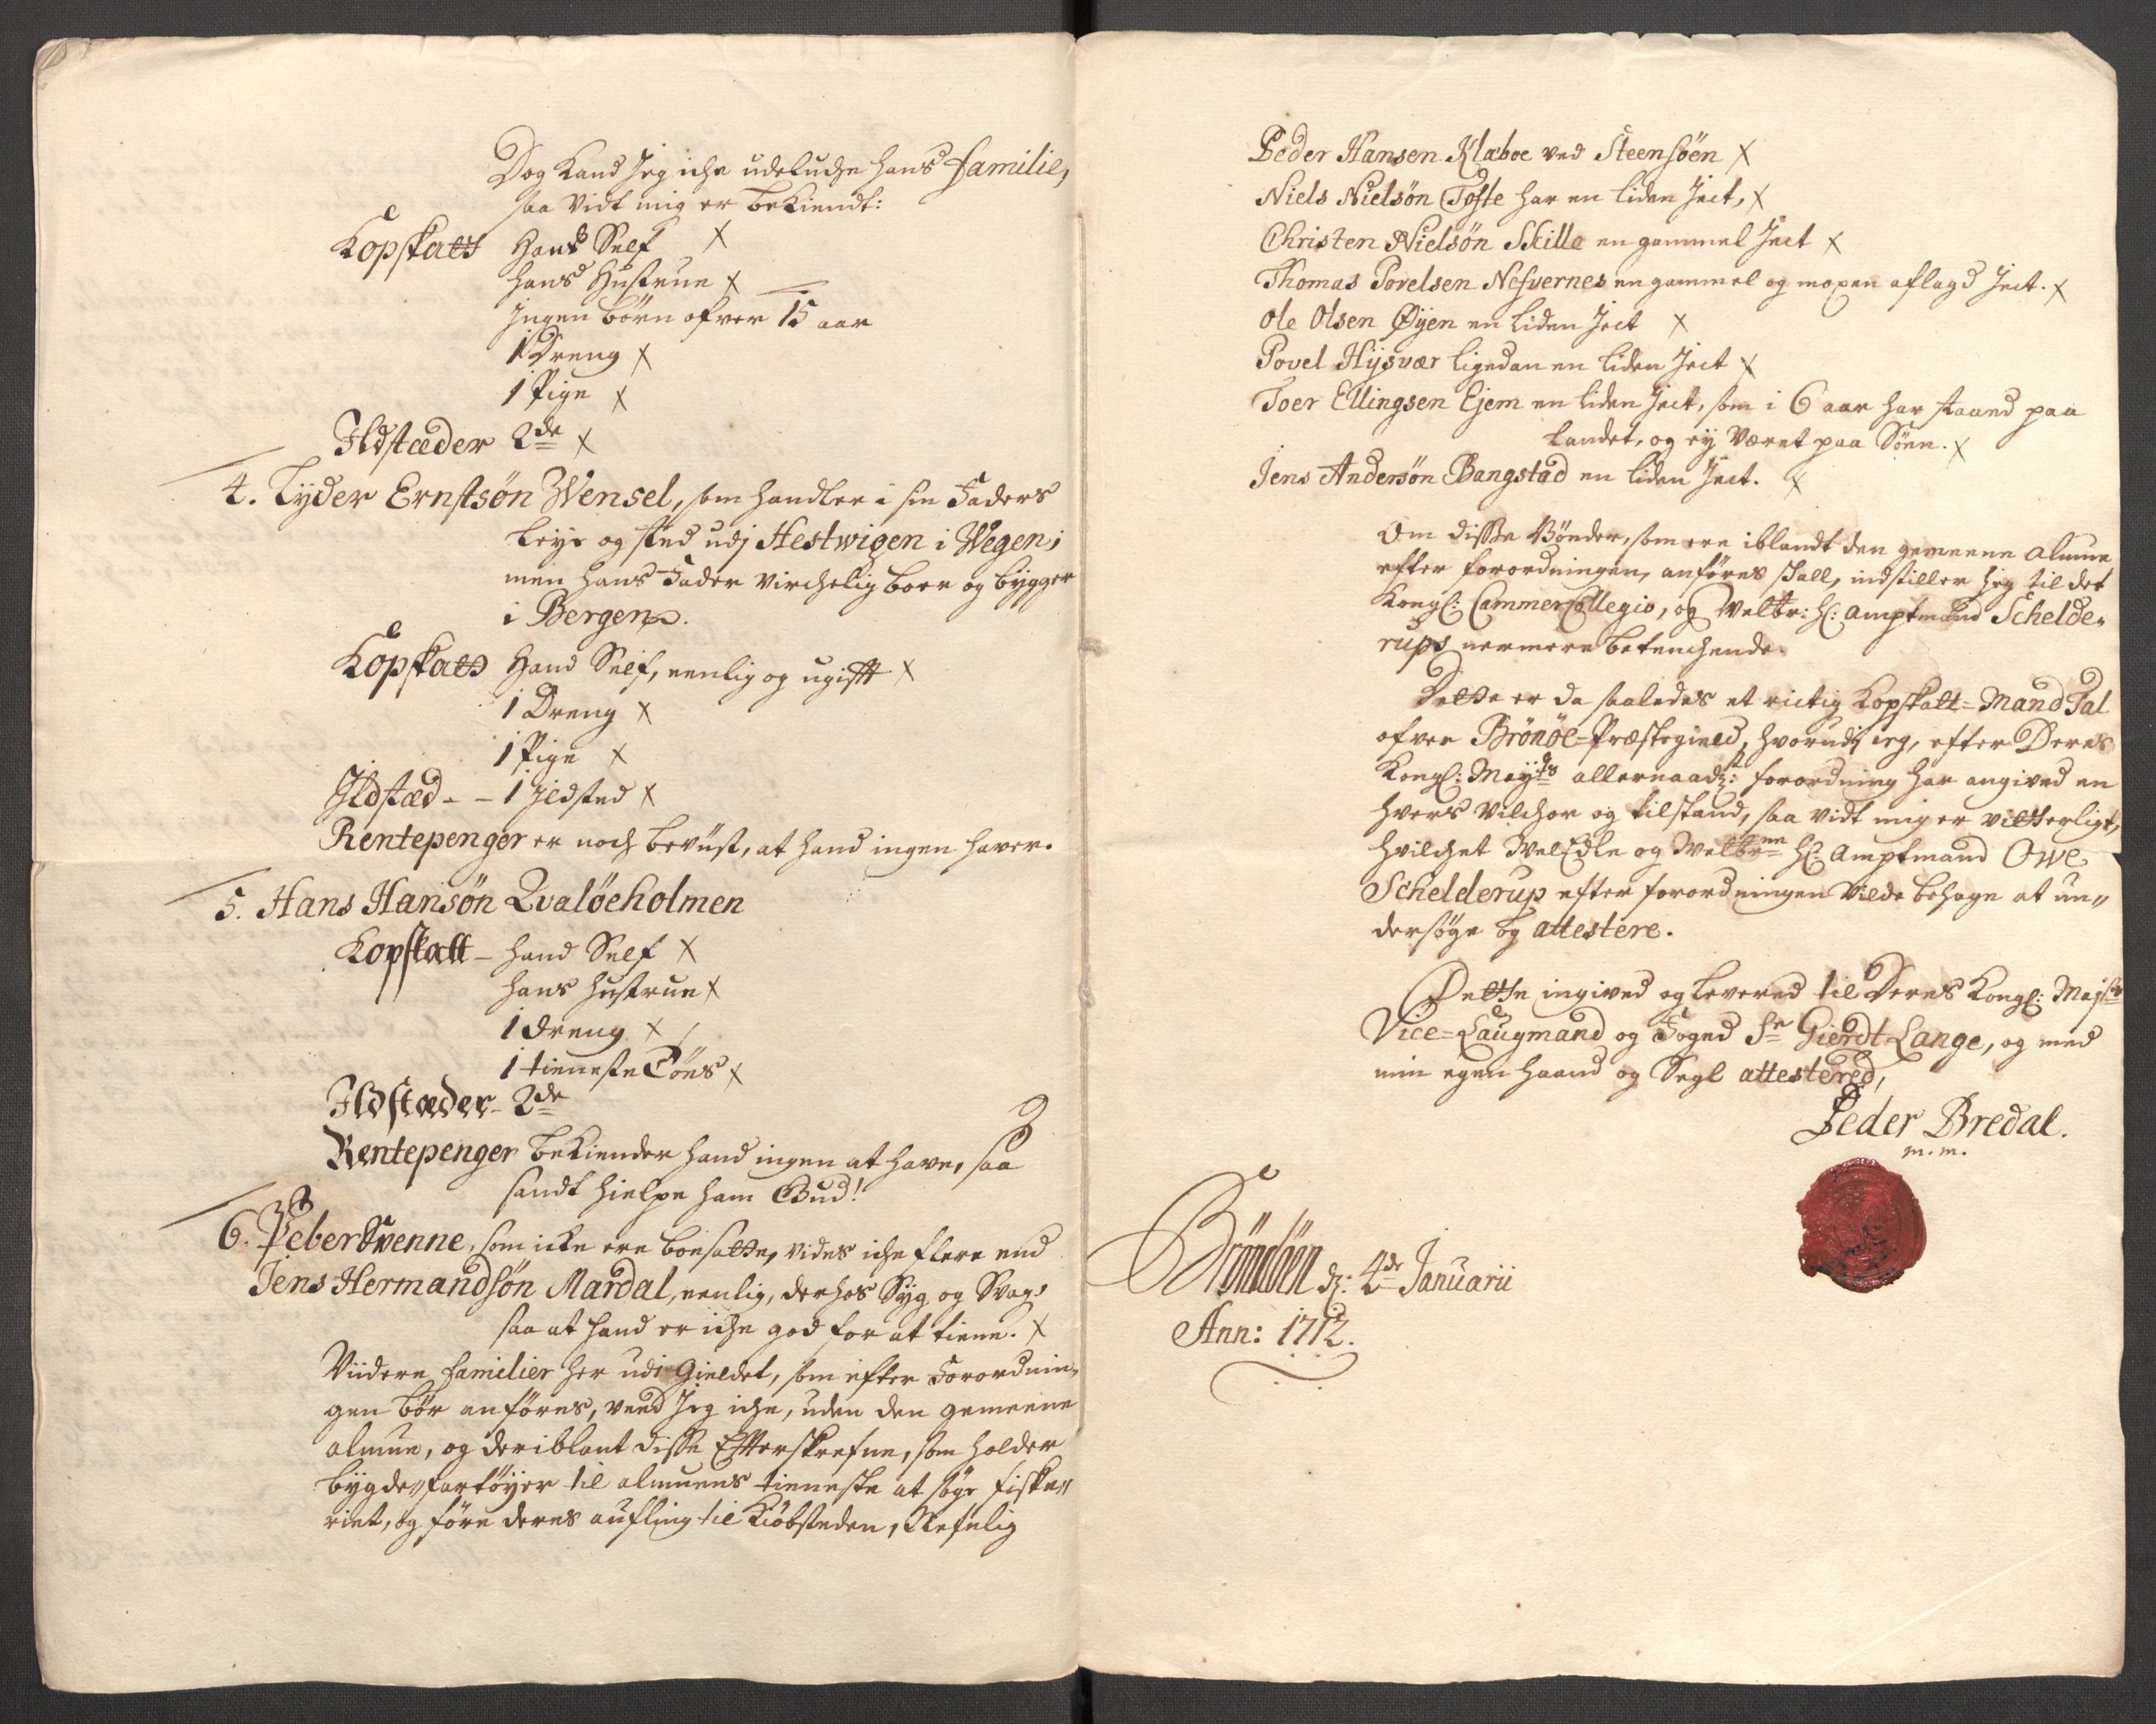 Dog kand Jeg iche udelucke hans familie,
saa vidt mig er bekiendt:
Kopskatt Hand Self x
hans Hustrue x
Ingen børn ofver 15 aar
1 Dreng x
1 Pige x
Ildstæder 2de x
4. Tyder Ernstsøn Wensel, som handler i sin Faders
leye og sted udj Hestwigen i Wegen;
men hans Fader virchelig boer og bygger
i Bergen.
Kopskatt Hand Self, eenlig og ugifft x
1 Dreng x
1 Pige x
Ildstæd - - 1 Ildsted x
Rentepenger er noch bevust, at hand ingen haver.
5. Hans Hansøn Qvaløeholmen
Kopskatt - hand Self x
hans hustrue x
1 dreng x
1 tieneste Tøes x
Ildstæder - 2de
Rentepenger bekiender hand ingen at have, saa
sandt hielpe ham Gud!
6. PeberSvenne, som icke ere boesatte, vides iche flere end
Jens Hermandsøn Mardal, eenlig, derhos Syg og Svag,
saa at hand er iche god for at tiene. x
Viidere familier her udi Gieldet, som efter Forordnin-
gen bør anføres, veed Jeg iche, uden den gemeene
almue, og deriblant disse Efterskrefne, som holder
bygdefartøyer til almuens tieneste at søge fiske-
riet, og føre deres aufling til Kiøbsteden, Nefnlig
Peder Hansen Klæboe ved Steensöen x
Niels Nielsön Tofte har en liden Ject, x
Christen Nielsön Skille en gammel Ject x
Thomas Povelsen Nesvernes en gammel og moxen aflagd Ject. x
Ole Olsen Øyen en liden Ject x
Povel Hysvær ligedan en liden Ject x
Toer Ellingsen Ejem en liden Ject, som i 6 aar har staaed paa
landet, og ey Været paa Söen. x
Jens Andersön Bangstad en liden Ject. x
Om disse Bönder, som ere iblandt den gemeene almue
efter forordningen, anføres skall, indstiller jeg til det
Kongl: CammerCollegio, og Velbr: Hr: Amptmand Schelde-
rups nermere betenchende.
Dette er da saaledes et rictig Kopskatt-Mand Tal
ofver Brønøe-Præstegield, hvorudj jeg, efter Deres
Kongl: Mayts allernaadst: forordning har angived en
hvers Vilchor og tilstand, saa vidt mig er vitterligt,
hvilchet VelEdle og Velbrne Hr. Amptmand Owe
Schelderup efter forordningen vilde behage at un-
dersøge og attestere.
Dette ingived og levered til Deres Kongl: Majsts
Vice-Laugmand og Foged Sr Gierdt Lange, og med
min egen haand og Segl attestered,
Peder Bredal.
m. m.
Brönöen d: 4de Januarii
Ann: 1712.